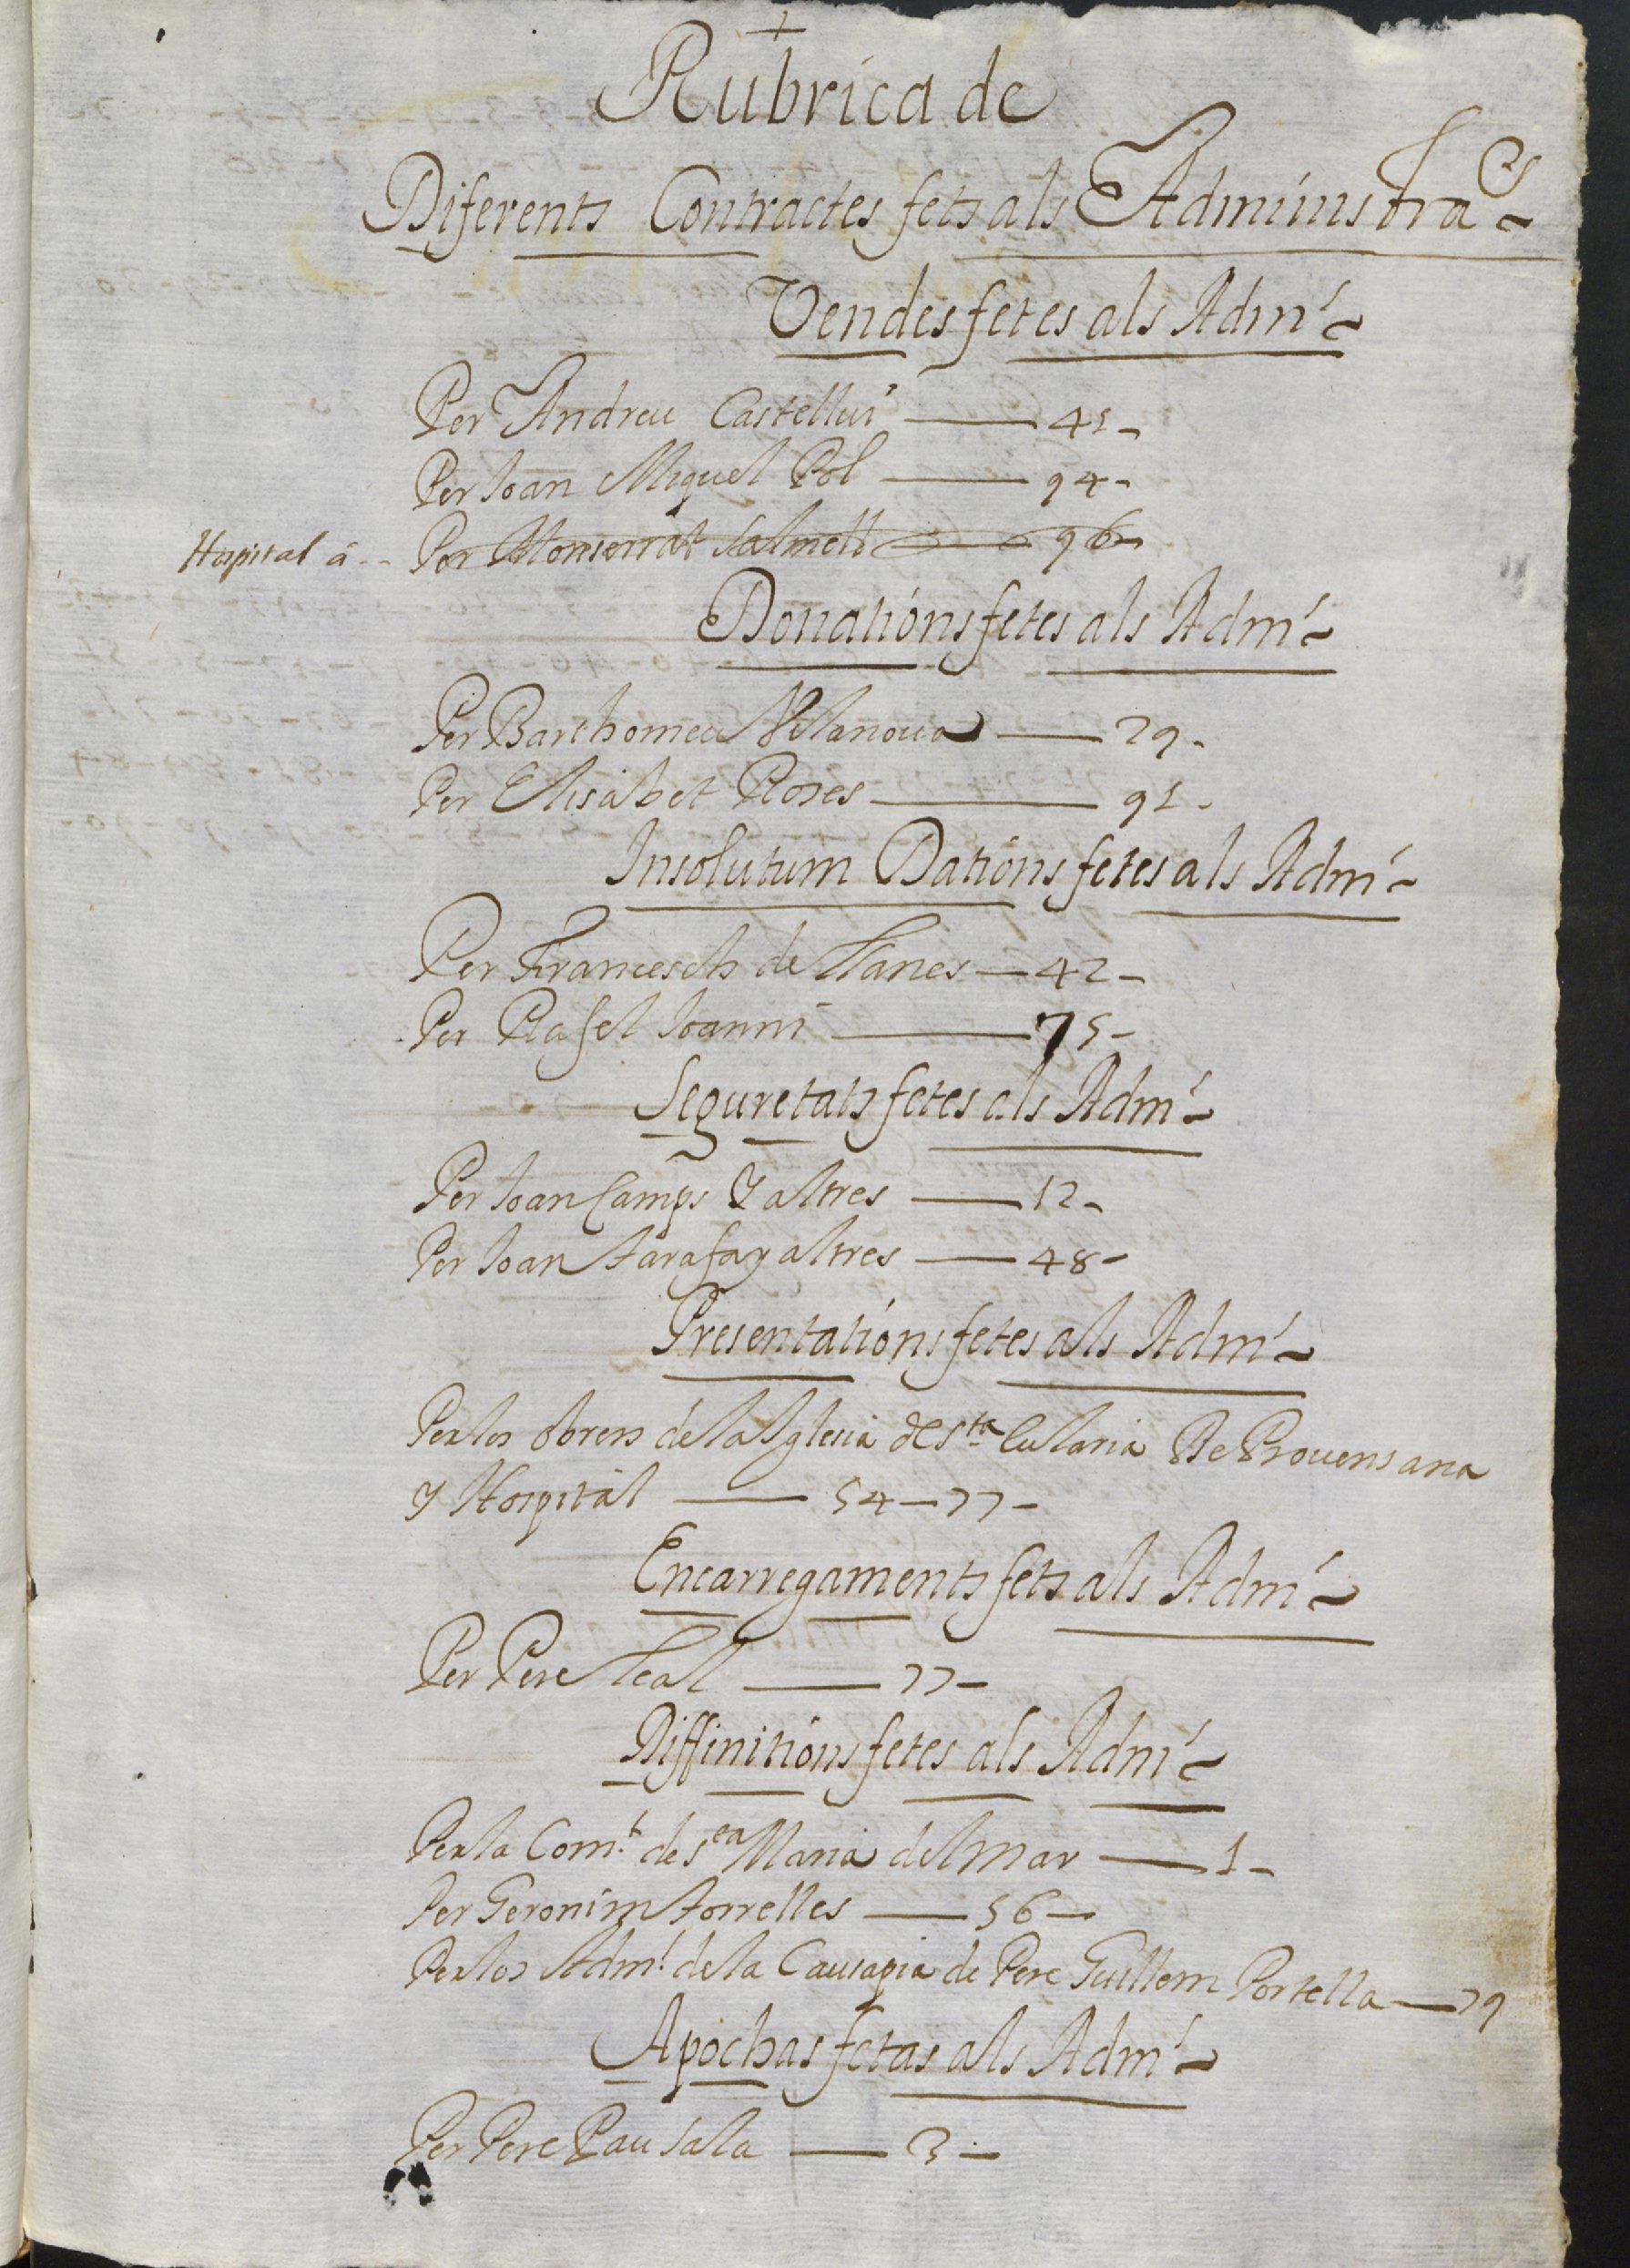 +
Rubrica de
Diferents Contractes fets als Administra^rs
Vendes fetes als Adm^rs
Per Andreu Castellvi — 41 -
Per Joan Miquel Pol — 94 -
Hospital à -- Per Monserrat Salmell — 96 -
Donations fetes als Adm^rs
Per Barthomeu Vilanova — 29 -
Per Elisabet Roses — 91 -
Insolutum Dations fetes als Adm^rs
Per Francesch de Llanes — 42 -
Per Rafel Joanni — 75 -
Seguretats fetes als Adm^rs
Per Joan Camps y altres — 12 -
Per Joan Tarafa y altres — 48 -
Presentations fetes als Adm^rs
Per los obrers de la Iglesia de S^ta Eularia De Provensana
y Hospital — 54 — 77 -
Encarregaments fets als Adm^rs
Per Pere Leal — 77 -
Diffinitions fetes als Adm^rs
Per la Com^t de S^ta Maria del Mar — 1 -
Per Geronim Torrelles — 56 -
Per los Adm^rs de la Causa pia de Pere Guillem Portella — 79
Apochas fetas als Adm^rs
Per Pere Pau Sala — 3 -